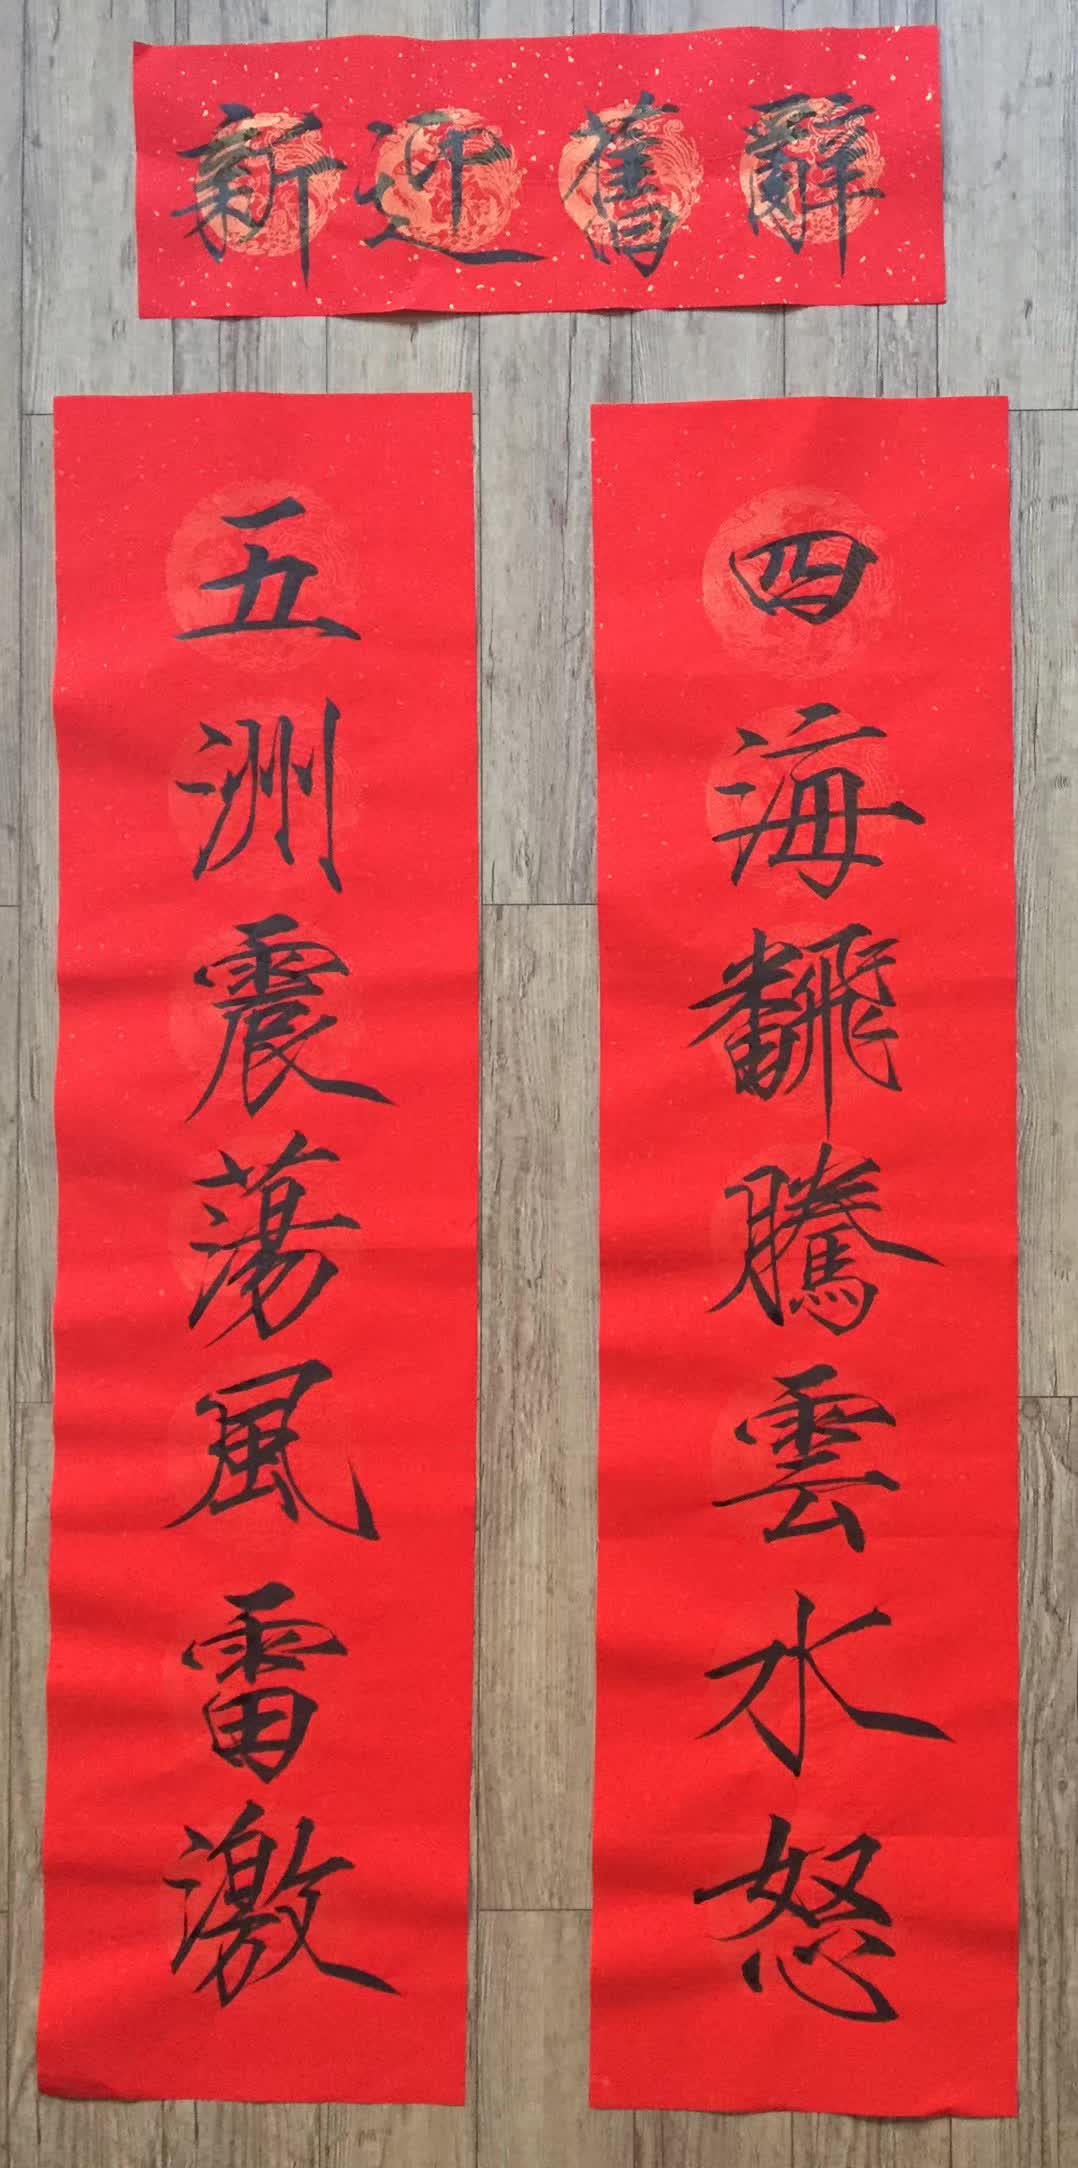 辭舊迎新
四海飜騰雲水怒
五洲震蕩風雷激